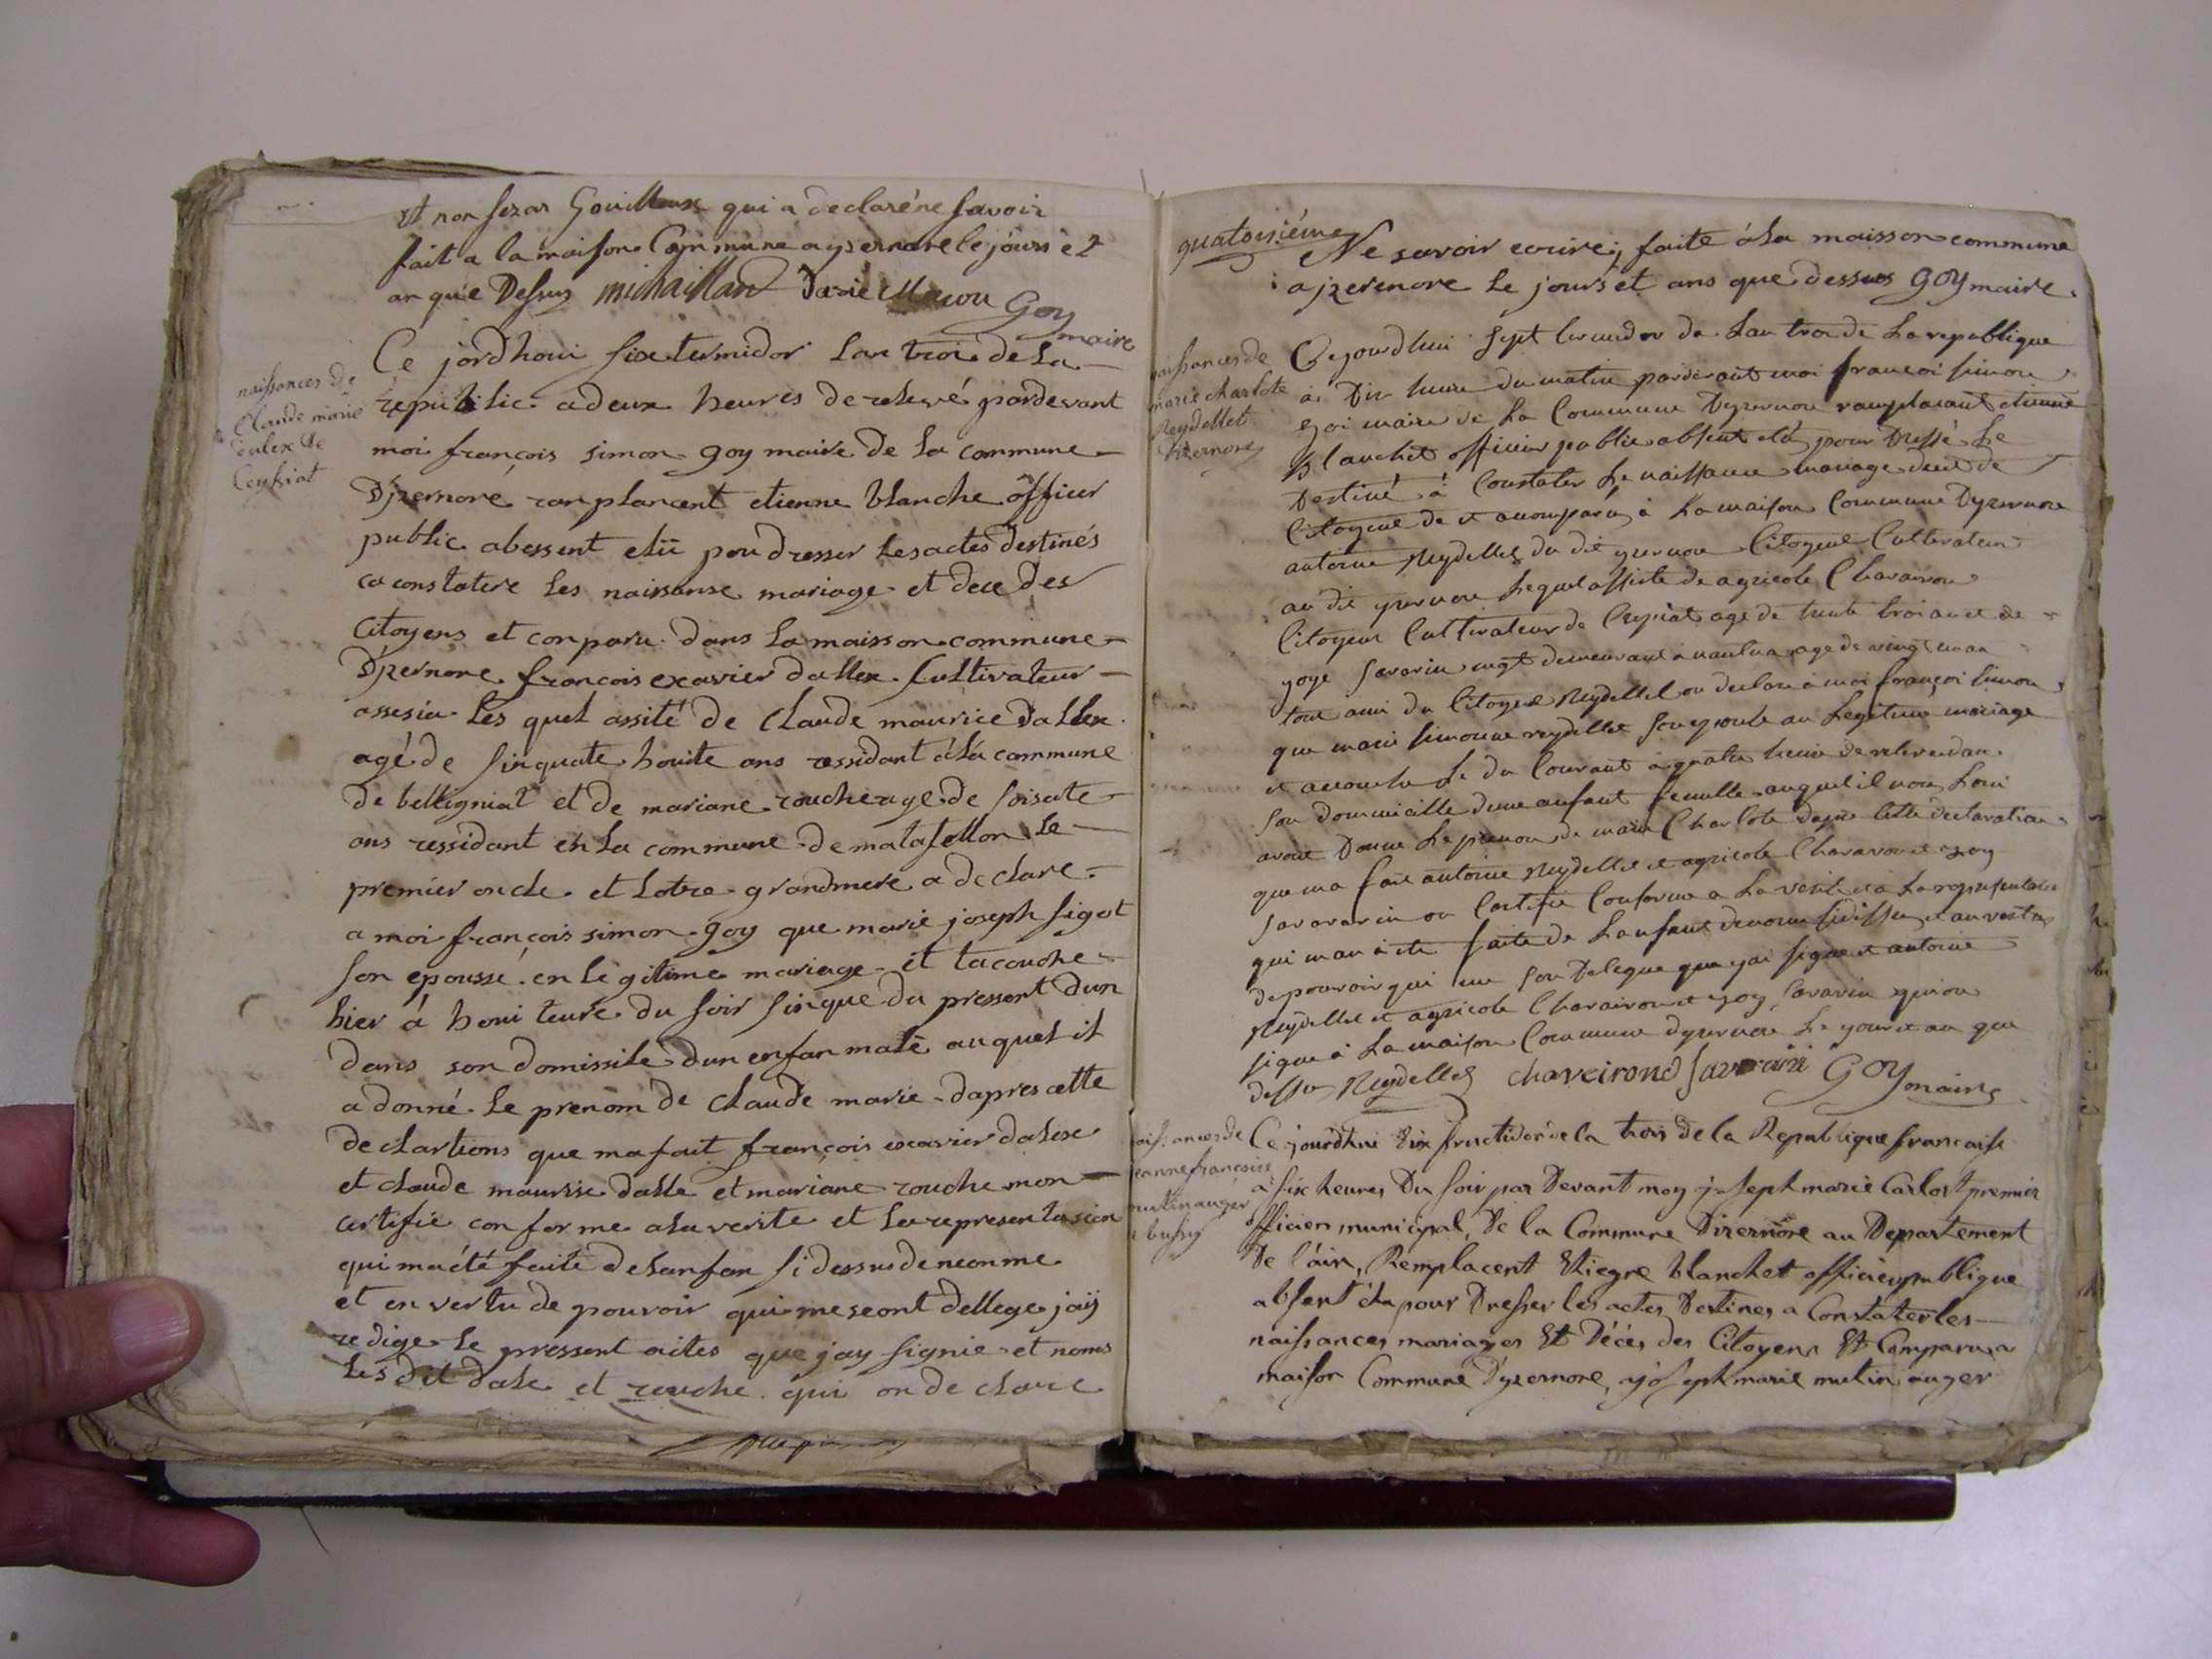 et non sezar Gouilloux qui a declaré ne savoir
fait a la maison Commune a yzernore le jours et
an que Dessus michaillard Darie Macon Goy
maire
naissances de
Claude marie
dalex de
Ceyssiat
Ce jordhoui six termidor lan troi de la
republic a deux heures de relevé pardevant
moi françois simon goy maire de la commune
D'jzernore ranplancent etienne blanche officer
public abessent elü pou dresser les actes destinés
a constatere les naissanse mariage et dece des
Citoyens et conparu dans la maisson commune
D'jzernore francois exavier dallex Cultivateur
assesia les quel assité de Claude maurice dallex
agé de sinquate houite ans ressidant á la commune
de belligniat et de mariane rouche age de soisate
ans ressidant en la commune de matafellon le
premier oncle et lotre grandmere a declare
a moi françois simon goy que marie joseph sigot
son epousse en legitime mariage et tacouche
hier á houi teure du soir sinque du pressent dun
dans son domissile dun enfan male auquel il
a donné le prenom de Claude marie dapres cette
declartions que ma fait françois exavier dalex
et claude maurise dalle et mariane rouche mon
certifie conforme a la verite et la representasion
qui ma été faite de lanfan si dessus denonme
et en vertu de pouvoir qui me seont dellege jaÿ
redige le pressent actes que jay signie et nonis
les dit dale et rouche qui on declare
quatorsiéme
Ne savoir ecrire, faite á la maisson commune
a jzerenore le jours et ans que dessus GOY maire
naissances de
marie charlote
Reydellet
Izernore
Cejourdhui sept termidor de lan troi de la republique
à Dix heure du matin pardevant moi françoi simon
goi maire de la Commune Dyzernore ramplacant etienne
Blanchet officier public absent elu pour Dressé le
Destiné à Constater le naissance mariage decé de
Citoyens de et a comparu à la maison Commune Dyzernore
antoine Reydellet du dit yzernore Citoyens Cultivateur
au dit yzernore lequel assiste de agricole Charairon
Citoyen Cultivateur de Ceysiat age de trente troi an et de
goye savarin demeurant a age de vingt un an
tous ami du Citoyens Reydellet on declaré à moi françoi simon
que marie simonne reydellet son epouse an legitime mariage
et accouche le du Courant à quatre heure de relevé dan
son dommicille dune anfant femelle auquel il nous
avons Donne le prenom de marie Charlote Dapré cette declaration
que ma fait antoine Reydellet et agricole Charavon et goy
savarin on Certifie Conforme a la verite et a la representation
qui man à ete faite de lanfant denomme sidissus et an vertu
de pouvoir qui me son Delegue que jai signé et antoine
Reydellet et agricole Charairon et goy savarin qui on
signé à la maison Commune dyzernore le jour et an que
dessu Reydellet chaveirond savarin GOY maire
naissances de
jeanne françoise
mutin auger
a bussy
Ce jourdhui Dix fructidor de la trois de la Republique française
à six heures Du soir par Devant moy joseph marie Carlost premier
officier municipal, De la Commune Dizernore au Departement
De l'áin, Remplacent Etiegne blanchet officier publique
absent élu pour Dresser les actes Destines a Constater les
naissances mariages Et Décès des Citoyens Et Comparu a
maison Commune Dyzernore, joseph marie mutin auger